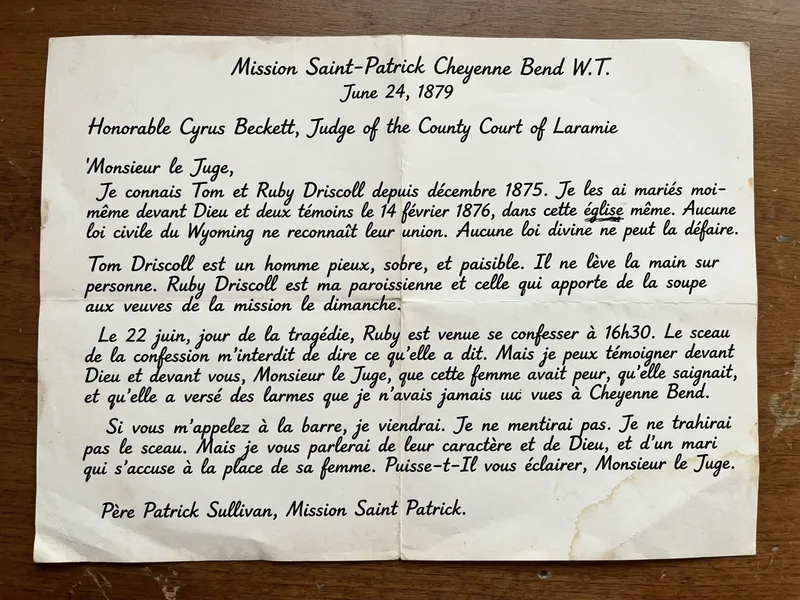 Mission Saint-Patrick Cheyenne Bend W.T.
June 24, 1879
Honorable Cyrus Beckett, Judge of the County Court of Laramie
'Monsieur le Juge,
Je connais Tom et Ruby Driscoll depuis décembre 1875. Je les ai mariés moi-
même devant Dieu et deux témoins le 14 février 1876, dans cette église même. Aucune
loi civile du Wyoming ne reconnaît leur union. Aucune loi divine ne peut la défaire.
Tom Driscoll est un homme pieux, sobre, et paisible. Il ne lève la main sur
personne. Ruby Driscoll est ma paroissienne et celle qui apporte de la soupe
aux veuves de la mission le dimanche.
Le 22 juin, jour de la tragédie, Ruby est venue se confesser à 16h30. Le sceau
de la confession m'interdit de dire ce qu'elle a dit. Mais je peux témoigner devant
Dieu et devant vous, Monsieur le Juge, que cette femme avait peur, qu'elle saignait,
et qu'elle a versé des larmes que je n'avais jamais vues à Cheyenne Bend.
Si vous m'appelez à la barre, je viendrai. Je ne mentirai pas. Je ne trahirai
pas le sceau. Mais je vous parlerai de leur caractère et de Dieu, et d'un mari
qui s'accuse à la place de sa femme. Puisse-t-Il vous éclairer, Monsieur le Juge.
Père Patrick Sullivan, Mission Saint Patrick.